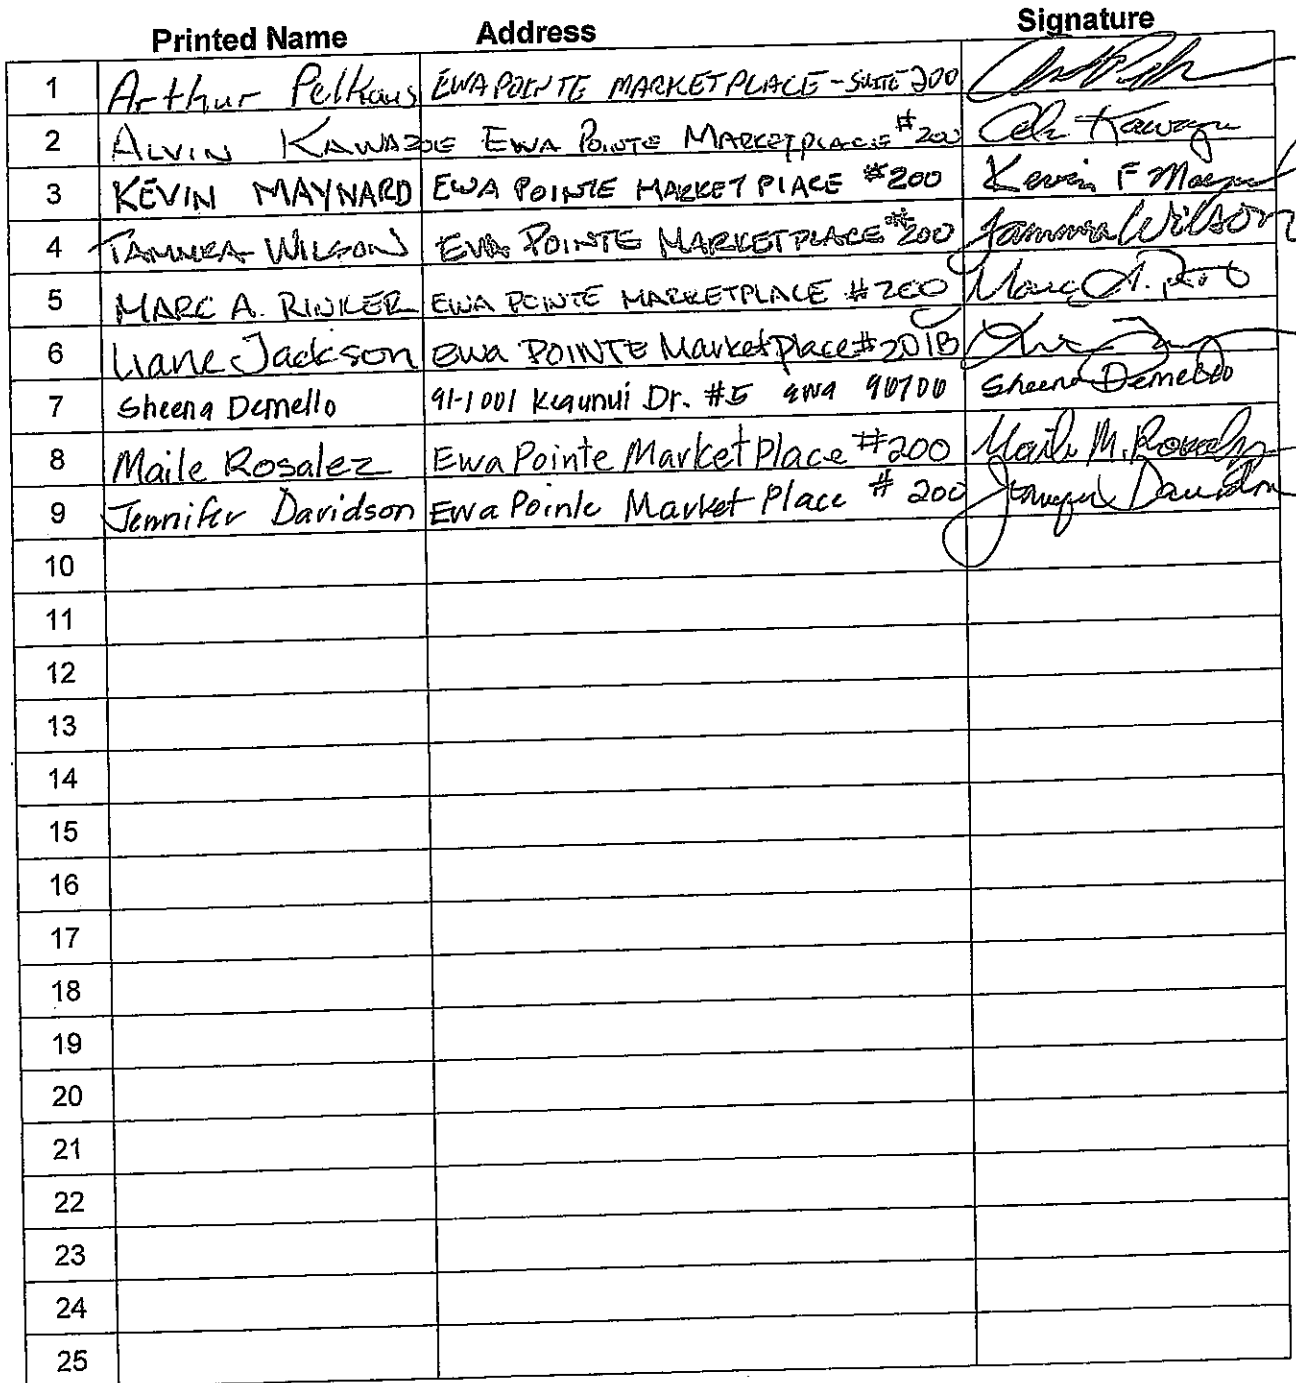 Printed Name Address Signature
1 Arthur Pelkaus EWA POINTE MARKETPLACE - SUITE 200
2 ALVIN KAWAZOE EWA POINTE MARKETPLACE #200
3 KEVIN MAYNARD EWA POINTE MARKET PLACE #200 Kevin F Maynard
4 TAMMRA WILSON EWA POINTE MARKETPLACE #200 Tammra Wilson
5 MARC A. RINKER EWA POINTE MARKETPLACE #200 Marc A.
6 Liane Jackson EWA POINTE Marketplace #201B
7 Sheena Demello 91-1001 Keaunui Dr. #5 Ewa 90700 Sheena Demello
8 Maile Rosalez Ewa Pointe Market Place #200 Maile M. Rosalez
9 Jennifer Davidson Ewa Pointe Market Place # 200 Jennifer Davidson
10
11
12
13
14
15
16
17
18
19
20
21
22
23
24
25